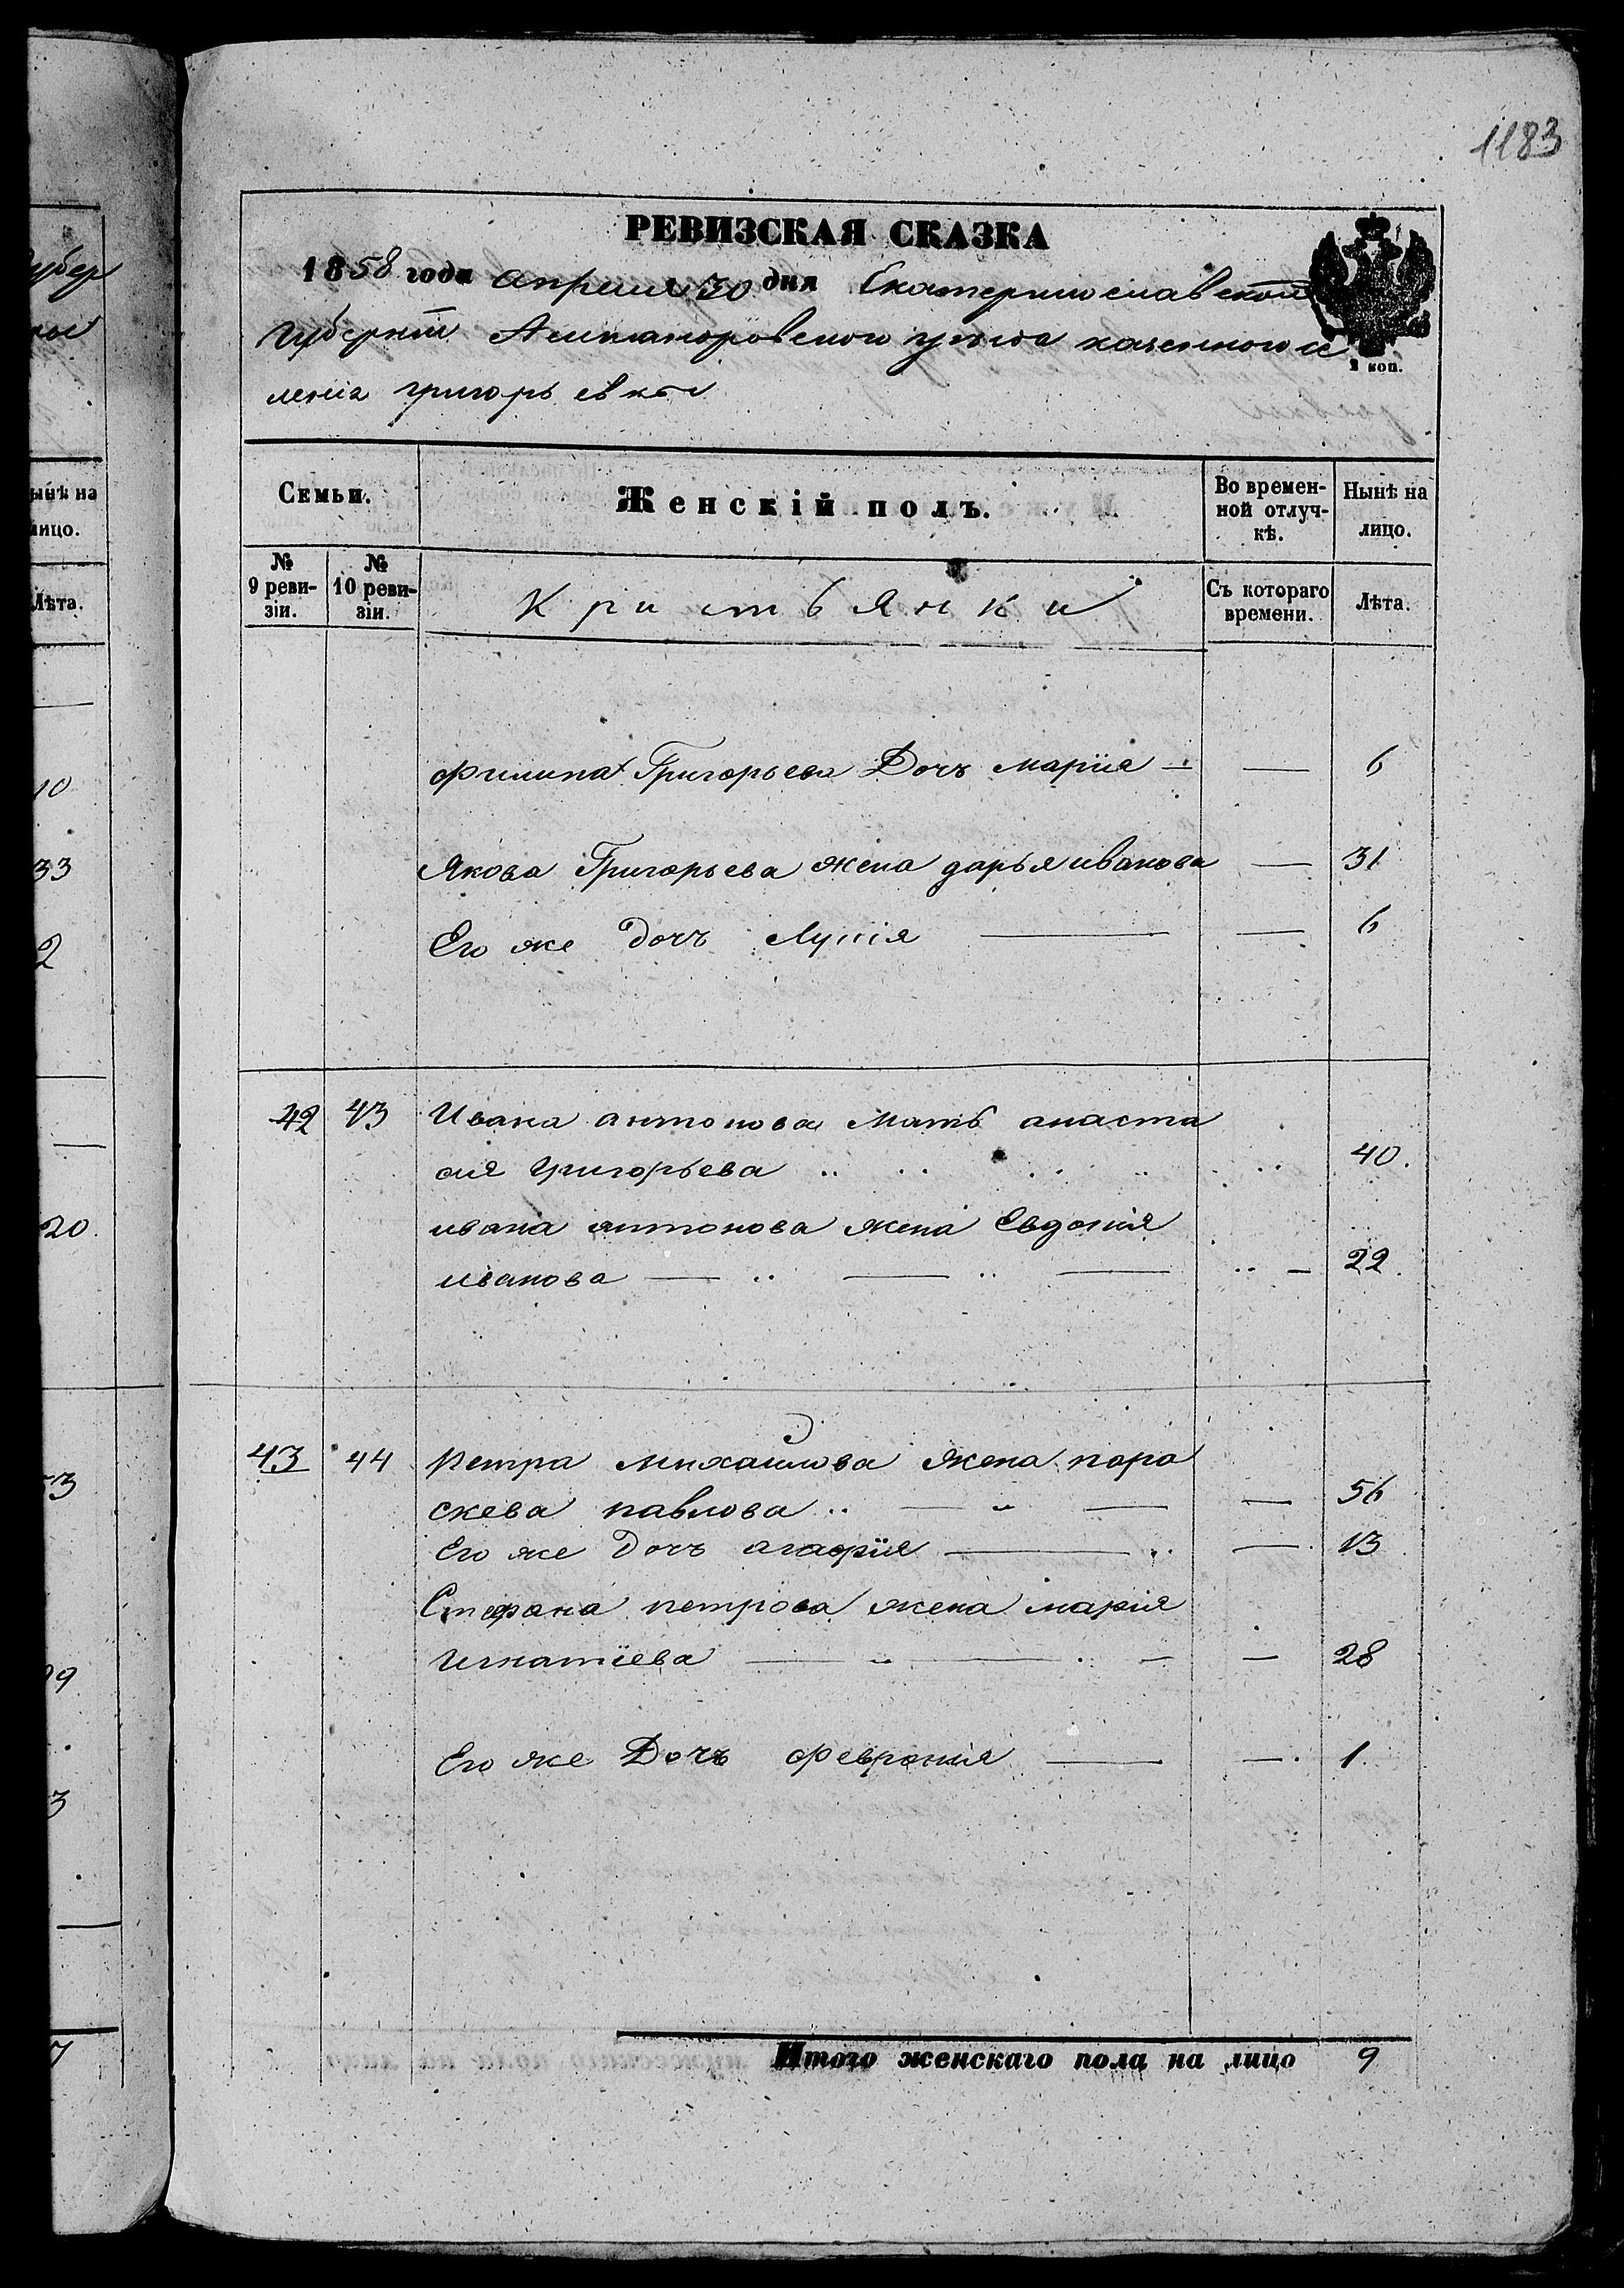 1183
РЕВИЗСКАЯ СКАЗКА
1858 года апреля 30 дня Екатеринославской
Губерніи Александровского уезда казенного се
ленія григорьевки
2 коп.
Семьи.
Женскій полъ.
Во времен-
ной отлуч-
кѣ.
Нынѣ на
лицо.
№
9 реви-
зіи.
№
10 реви-
зіи.
Кристьянки
Съ котораго
времени.
Лѣта.
Филипа Григорьева Дочъ марiiя — — 6
Якова Григорьева жена дарья иванова — 31
Его же дочъ Лукія — — 6
42 43 Ивана антонова мать анаста
сия григорьева 40.
ивана антонова жена Евдокия
иванова — — — — 22.
43 44 Петра михаилова жена пара
скева павлова — — — 56
Его же дочъ агафiiя — — 13
Стефана петрова жена мария
Игнатиева — — — — 28
Его же Дочъ Феврония — — 1.
Итого женскаго пола на лицо 9
губер
ынѣ на
лицо.
Лѣта.
10
33
2
20.
53
3
7